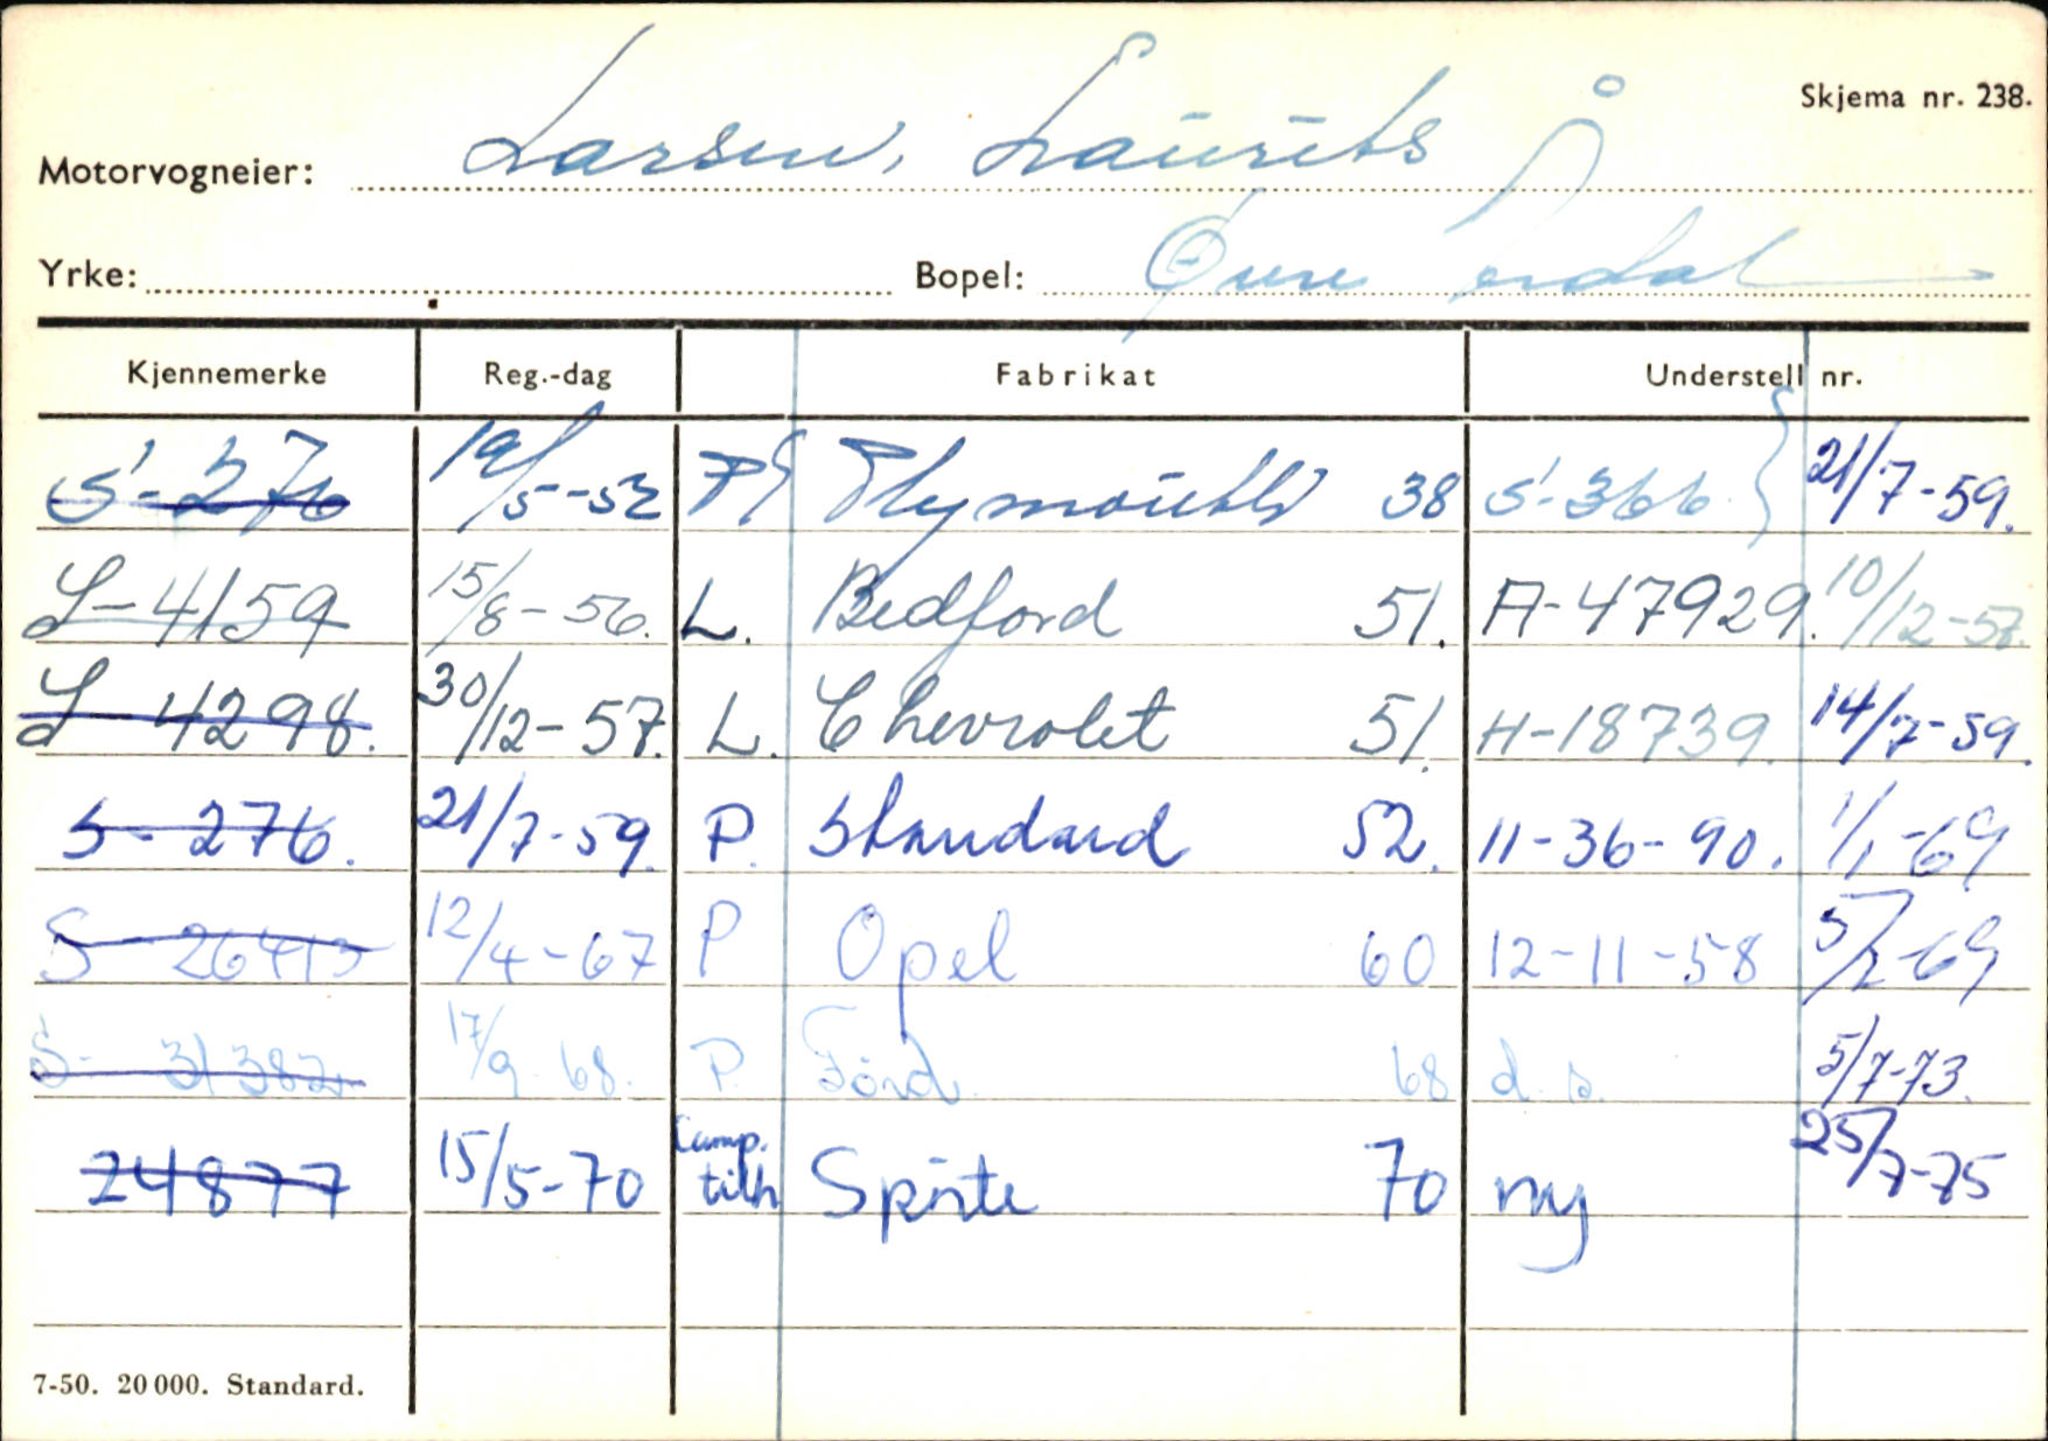 Skjema nr. 238.
Motorvogneier: Larsen, Laurits
Yrke: Bopel: Øvre Årdal
Kjennemerke Reg.-dag Fabrikat Understell nr.
S-276 19/5-52 P Plymouth 38 S-366 21/7-59.
S-4159 15/8-56. L. Bedford 51. A-47929. 10/12-57.
S 4298. 30/12-57. L. Chevrolet 51. H-18739. 14/7-59.
S-276. 21/7-59. P. Standard 52. 11-36-90. 1/1-69
S-26413 12/4-67 P Opel 60 12-11-58 5/2-69
S-31382 17/9-68. P. Ford 68 d.s. 5/7-73.
24877 15/5-70 Camp. tilh Sprite 70 ny 25/7-75
7-50. 20 000. Standard.